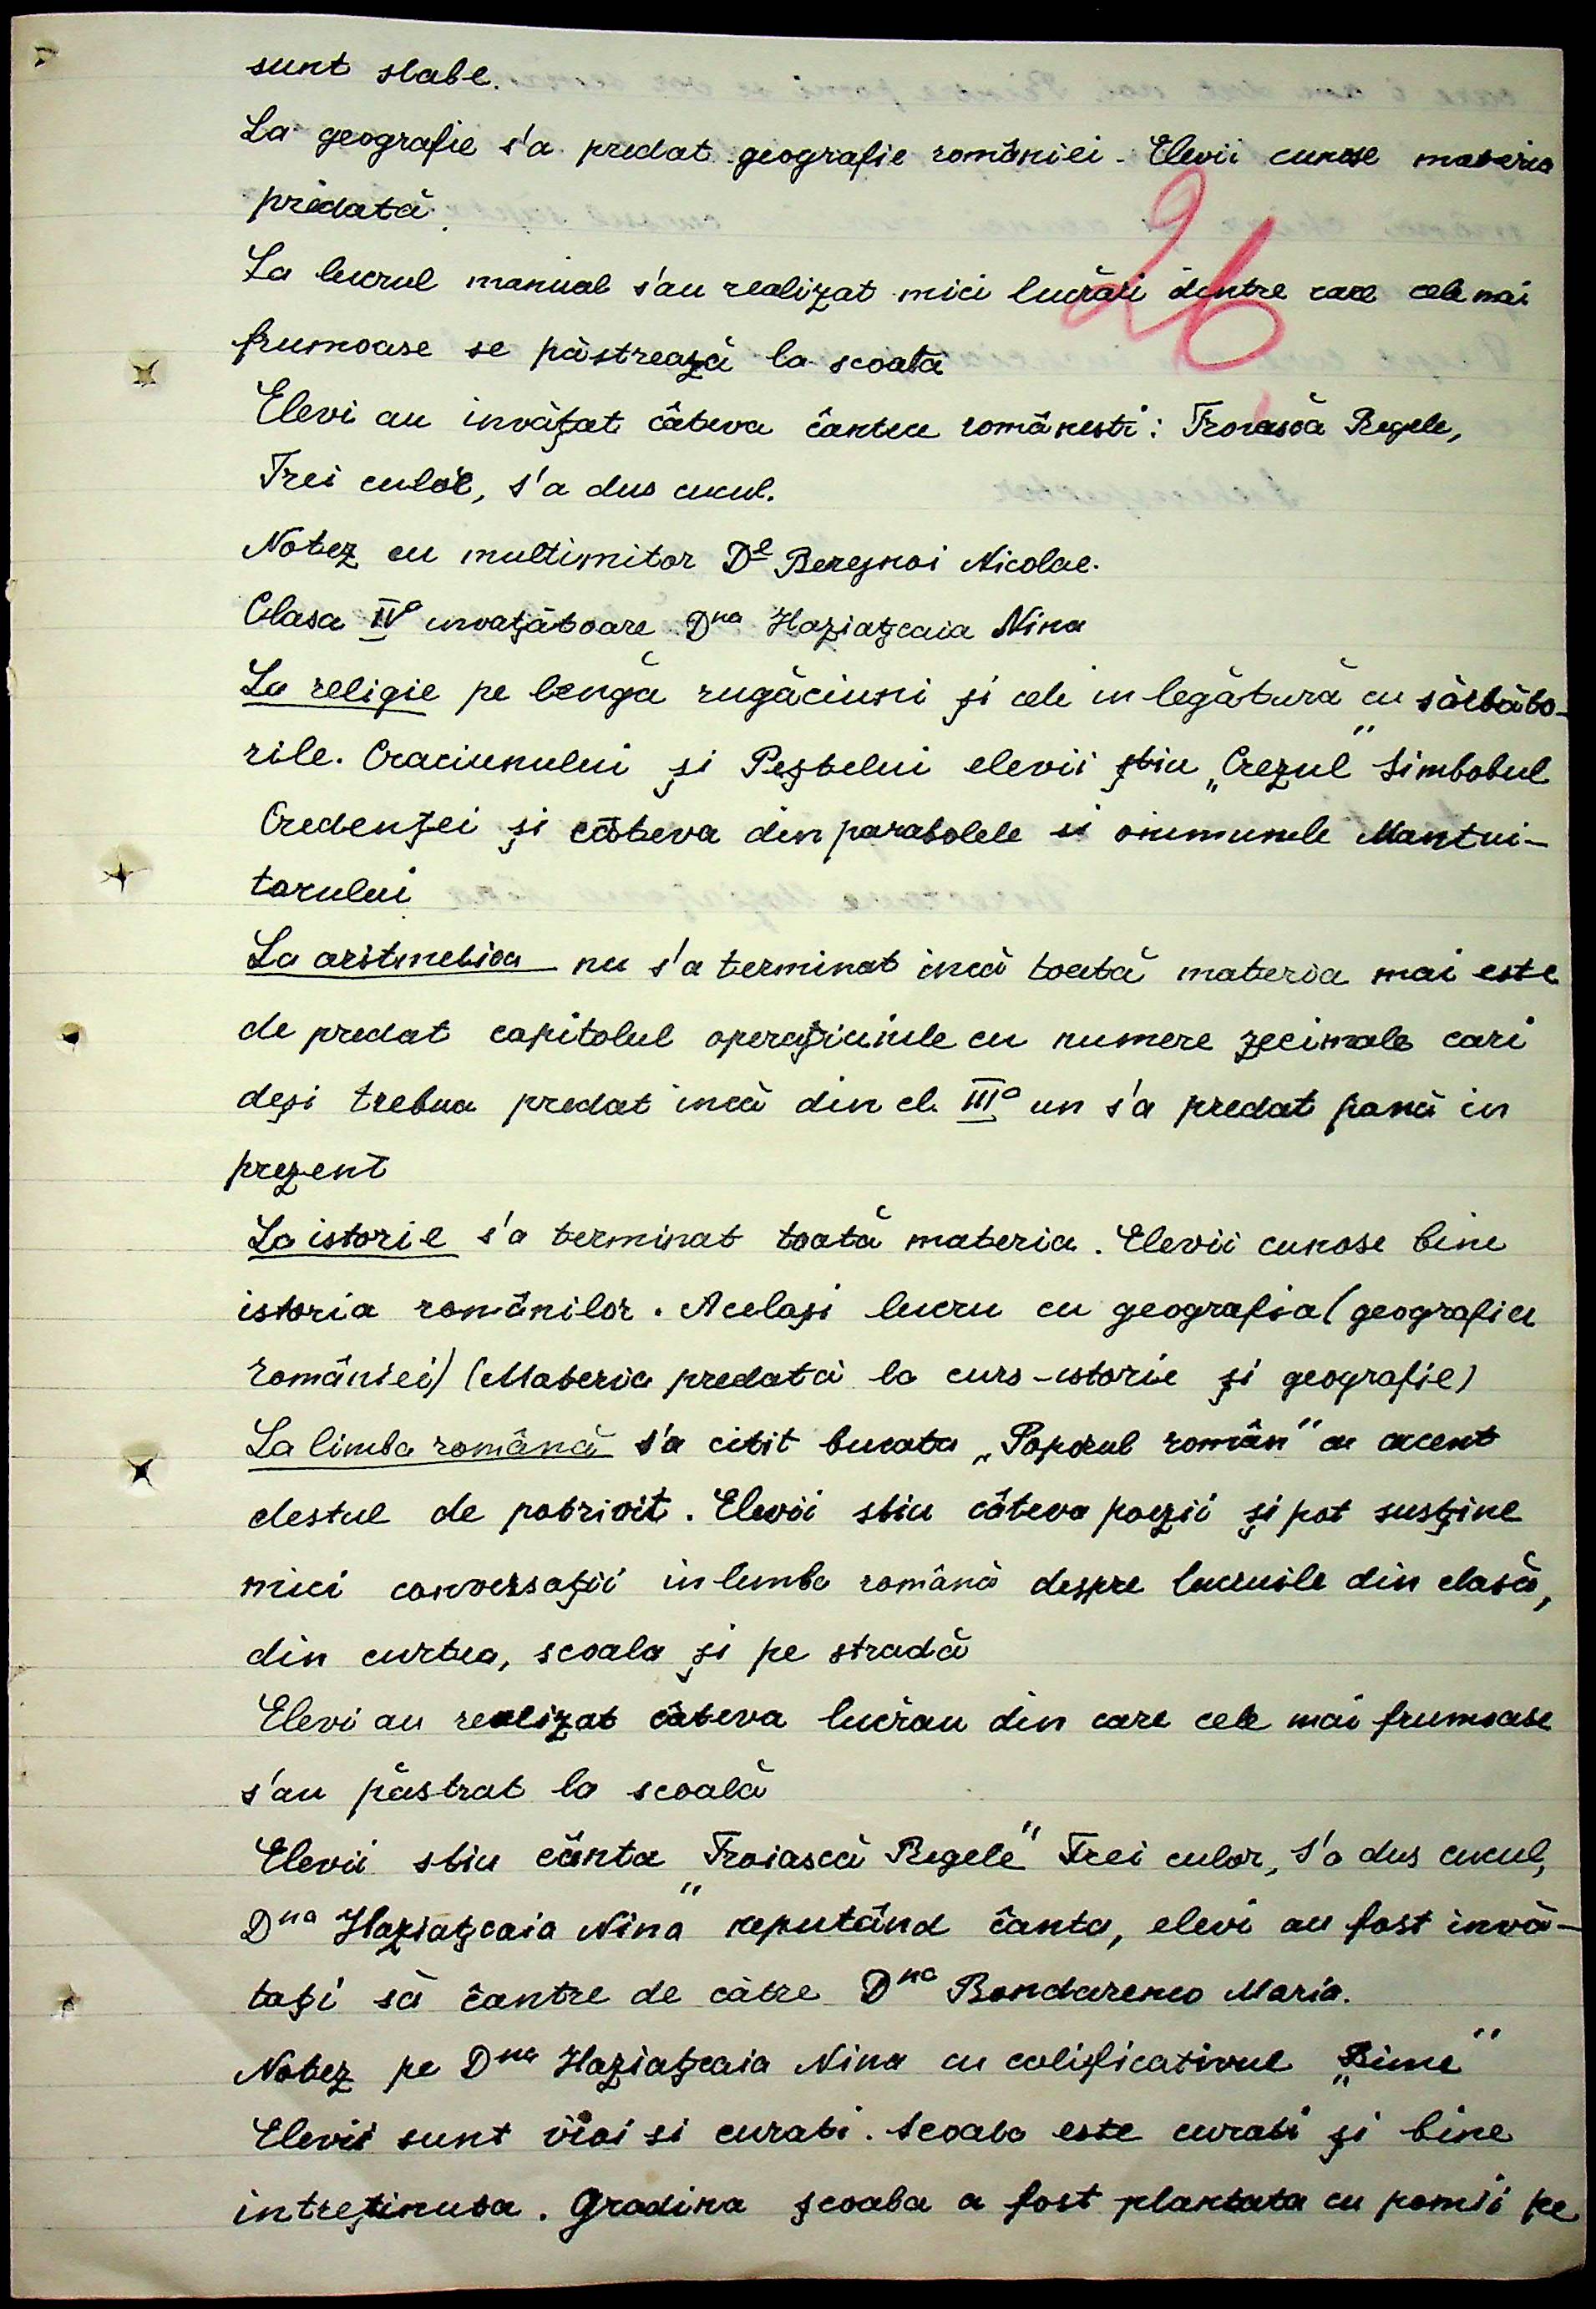 sunt slabe.
La geografie s'a predat geografie româniei - Elevii cunosc materia
predată.
26
La lucrul manual s'au realizat mici lucrări dintre care cele mai
frumoase se păstrează la scoală
Elevi au invăţat câteva cântece românesti: Troiască Regele,
Trei culor, s'a dus cucul.
Notez cu multimitor Dl Bereznoi Nicolae.
Clasa IVa invaţătoare Dna Haziaţcaia Nina
La religie pe lengă rugăciuni şi cele in legătură cu sărbăto-
rile. Craciunului şi Peştelui elevii ştiu „Crezul" Simbolul
Credenţei şi câteva din parabolele si minunele Mantui-
torului
La aritmetica nu s'a terminat incă toată materia mai este
de predat capitolul operaţiunile cu numere zecimale cari
deşi trebua predat incă din cl. IIIa nu s'a predat pană in
prezent
La istorie s'a terminat toată materia. Elevii cunosc bine
istoria românilor. Acelaşi lucru cu geografia (geografia
româniei) (Materia predată la curs-istorie şi geografie)
La limba română s'a citit bucata „Poporul român" cu accent
destul de potrivit. Elevii stiu câteva poezii şi pot susţine
mici conversaţii in limba română despre lucrurile din clasă,
din curtea, scoala şi pe stradă
Elevi au realizat câteva lucrări din care cele mai frumoase
s'au păstrat la scoală
Elevii stiu cânta „Troiască Regele" Trei culor, s'a dus cucul,
Dna Haziaţcaia Nina neputând cânta, elevi au fost invă-
taţi să cântre de către Dna Bondarenco Maria.
Notez pe Dna Haziaţcaia Nina cu calificativul „Bine"
Elevii sunt vioi si curati. Scoala este curati şi bine
intreţinuta. Gradina şcoala a fost plantata cu pomii pe